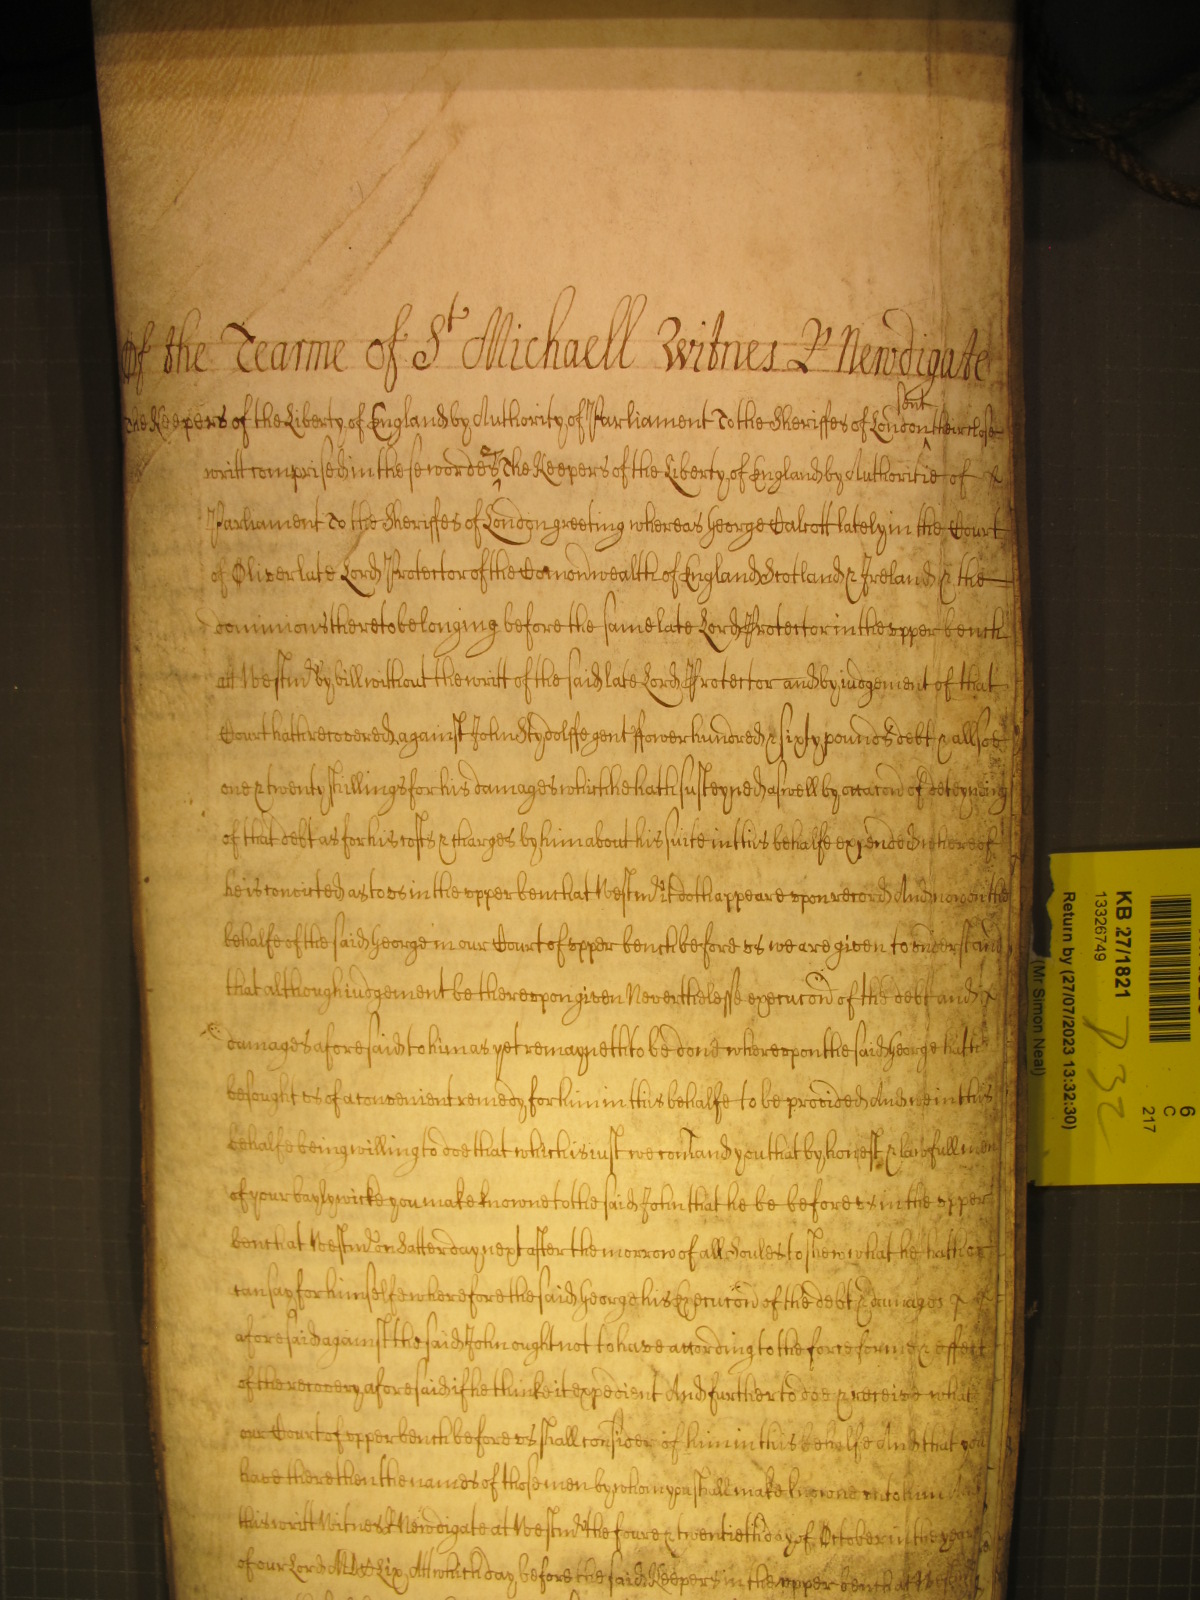 Of the Tearme of St Michaell Witnes R Newdigate
The Keepers of the Liberty of England by Authority of Parliament To the Sheriffes of London sent their close
writt comprised in these wordes The Keepers of the Liberty of England by Authoritie of &
Parliament To the Sheriffes of London greeting whereas George Calcott lately in the Court
of Oliver late Lord Protector of the Comonwealth of England Scotland & Ireland & the
dominions thereto belonging before the same late Lord Protector in the upper bench
att Westmr by bill without the writt of the said late Lord Protector and by iudgement of that
Court hath recovered against John gent ffower hundred & sixty pounds debt & allsoe
one & twenty shillings for his damages which he hath susteyned aswell by occacon of deteyning
of that debt as for his costs & charges by him about his suite in this behalfe expended whereof
he is convicted as to us in the upper bench at Westmr it doth appeare upon record And now on the
behalfe of the said George in our Court of upper bench before us we are given to understand
that although iudgement be thereupon given Neverthelesse execucon of the debt and &
damages aforesaid to him as yet remayneth to be done whereupon the said George hath
besought us of a convenient remedy for him in this behalfe to be provided And we in this
behalfe being willing to doe that which is iust we comand you that by honest & lawfull men
of your baylywicke you make knowne to the said John that he be before us in the upper
bench at Westmr on Satterday next after the morrow of all Soules to shew what he hath or
can say for himselfe wherefore the said George his Execucon of the debt & damages &
aforesaid against the said John ought not to have according to the force forme & effect
of the recovery aforesaid if he thinke it expedient And further to doe & receive what
our Court of upper bench before us shall consider of him in this behalfe And that you
have there then the names of those men by whom you shall make knowne unto him and
this writt Witnes R Newdigate at Westmr the foure & twentieth day of October in the yeare
of our Lord MDCLix Att which day before the said Keepers in the upper bench at
KB 27/1821
13326749
Return by (27/07/2023 13:32:30)
(Mr Simon Neal)
6
C
217